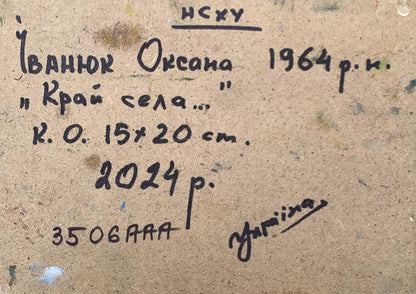 НСХУ
Іванюк Оксана 1964 р.н.
„Край села..."
К. О. 15×20 cm.
2024 р.
3506ААА
Україна